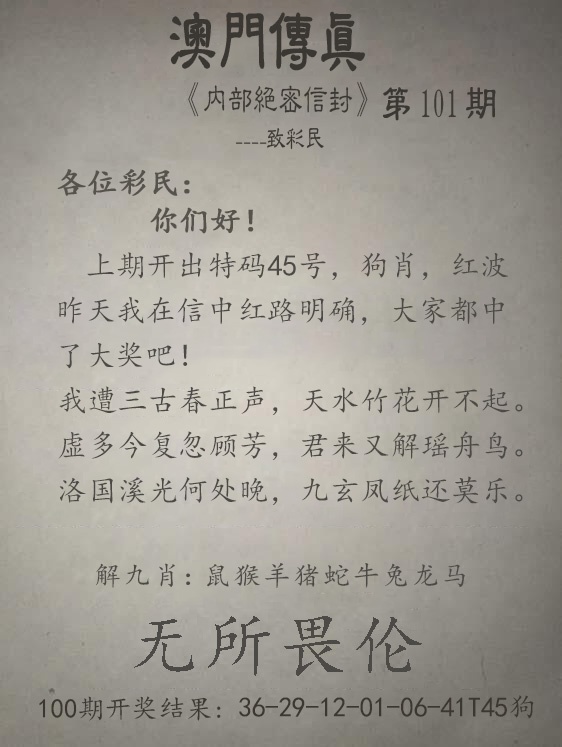 澳門傳眞
《内部絕密信封》第101期
----致彩民
各位彩民：
你们好！
上期开出特码45号，狗肖，红波
昨天我在信中红路明确，大家都中
了大奖吧！
我遭三古春正声，天水竹花开不起。
虚多今复忽顾芳，君来又解瑶舟鸟。
洛国溪光何处晚，九玄凤纸还莫乐。
解九肖：鼠猴羊猪蛇牛兔龙马
无所畏伦
100期开奖结果：36-29-12-01-06-41T45狗